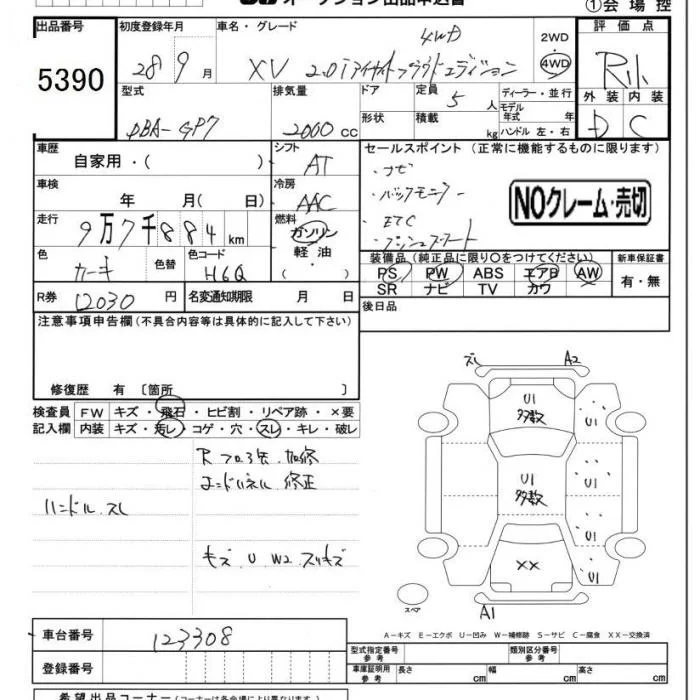 オークション出品申込書
①会場控
出品番号
5390
初度登録年月
28年9月
車名・グレード
XV 2.0iアイサイトプラウドエディション
4WD
2WD
4WD
評価点
R小
外装 内装
D C
型式
DBA-GP7
排気量
2000cc
ドア
形状
定員
5人
積載
kg
ディーラー・並行
モデル
年式 年
ハンドル 左・右
車歴
自家用・( )
シフト
AT
セールスポイント(正常に機能するものに限ります)
・ナビ
・バックモニター
・ETC
・プッシュスタート
NOクレーム・売切
車検
年 月( 日)
冷房
AAC
走行
9万7千884km
燃料
ガソリン
軽油
( )
色
カーキ
色替
色コード
H6Q
装備品(純正品に限り○をつけてください)
PS PW ABS エアB AW
SR ナビ TV カワ
新車保証書
有・無
R券
12030円
名変通知期限 月 日
後日品
注意事項申告欄(不具合内容等は具体的に記入して下さい)
修復歴 有〔箇所 〕
検査員
記入欄
FW キズ・飛石・ヒビ割・リペア跡・×要
内装 キズ・汚レ・コゲ・穴・スレ・キレ・破レ
ハンドル スレ
Rフロア 曲修
エンドパネル 修正
キズ U W2 スリキズ
スレ A2
U1
多数
U1
U1
多数
U1
U1
XX
U1
スペア
A1
A-キズ E-エクボ U-凹み W-補修跡 S-サビ C-腐食 XX-交換済
車台番号
123308
登録番号
型式指定番号
参考
類別区分番号
参考
車庫証明用
参考
長さ cm 幅 cm 高さ cm
希望出品コーナー(コーナーは各会場により異なります)